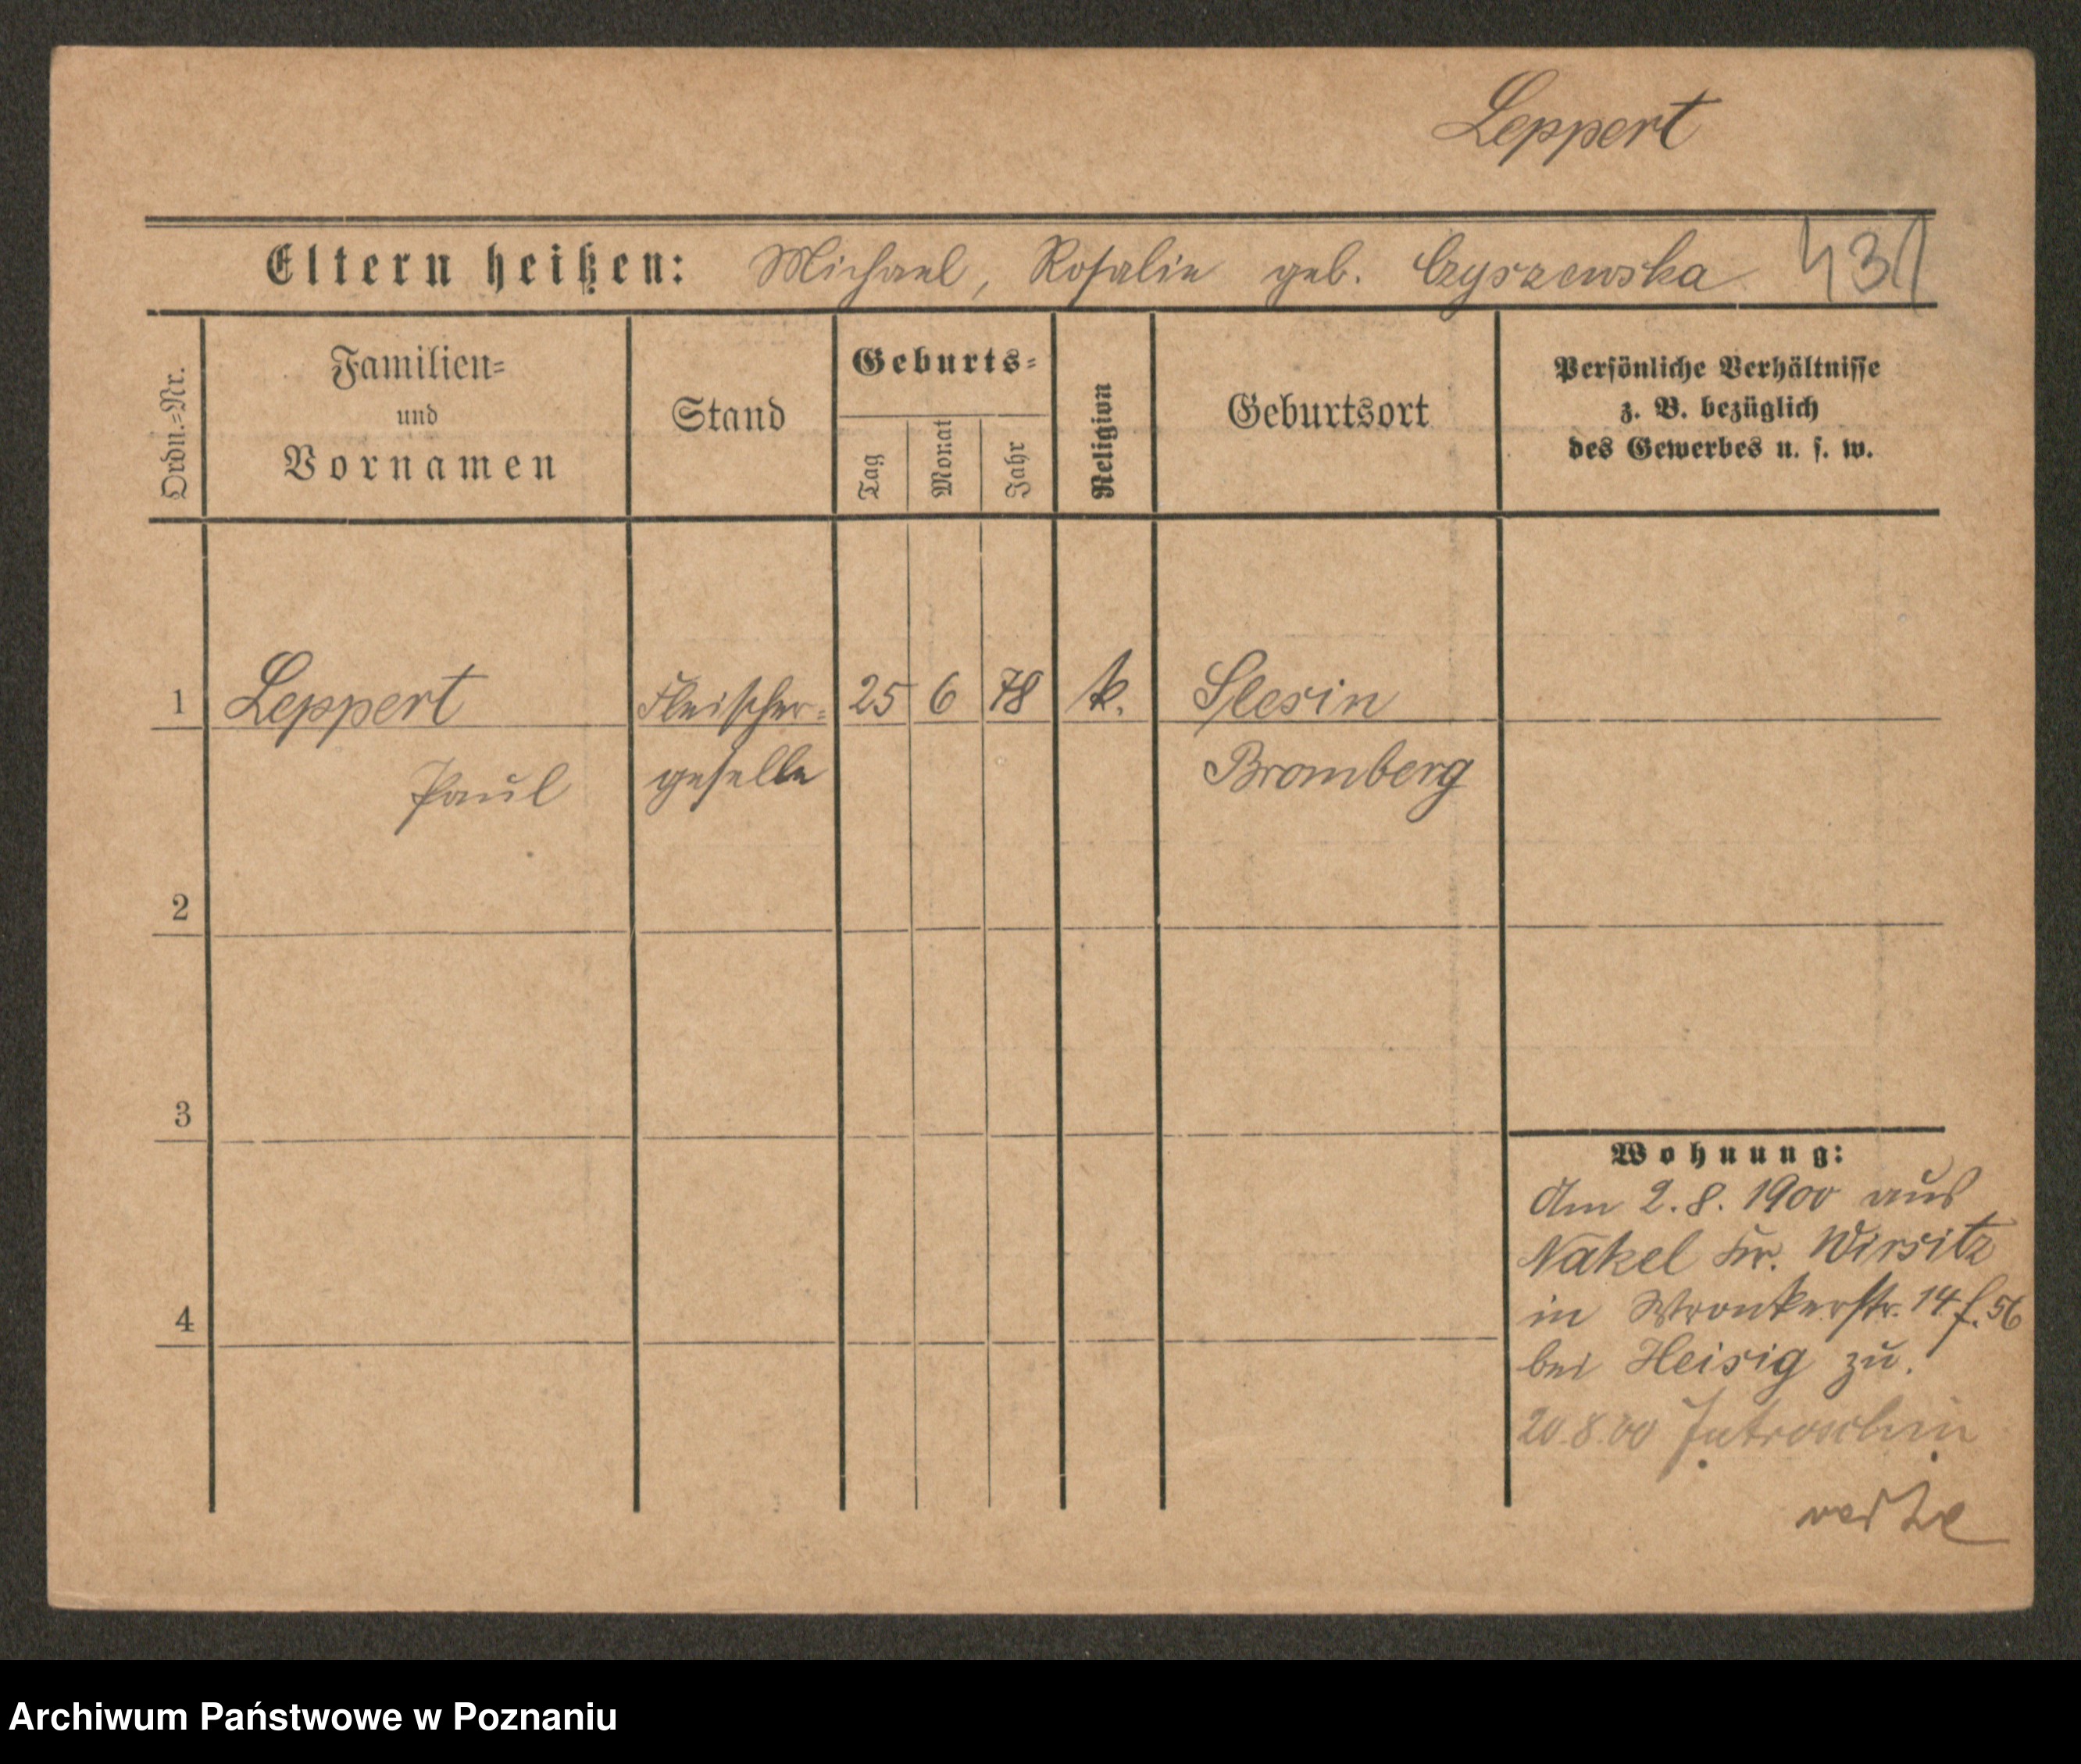 Leppert
Eltern heißen: Michael, Rosalie geb. Czyszewska 431
Ordn.=Nr.
Familien=
und
Vornamen
Stand
Geburts=
Tag
Monat
Jahr
Religion
Geburtsort
Persönliche Verhältnisse
z. B. bezüglich
des Gewerbes u. s. w.
1 Leppert Fleischer= 25 6 78 k. Slesin
Paul geselle Bromberg
2
3
4
Wohnung:
Am 2.8.1900 aus
Nakel Kr. Wirsitz
in Wronkerstr. 14 f. 56
bei Heisig zu.
20.8.00 Jutroschin
Archiwum Państwowe w Poznaniu